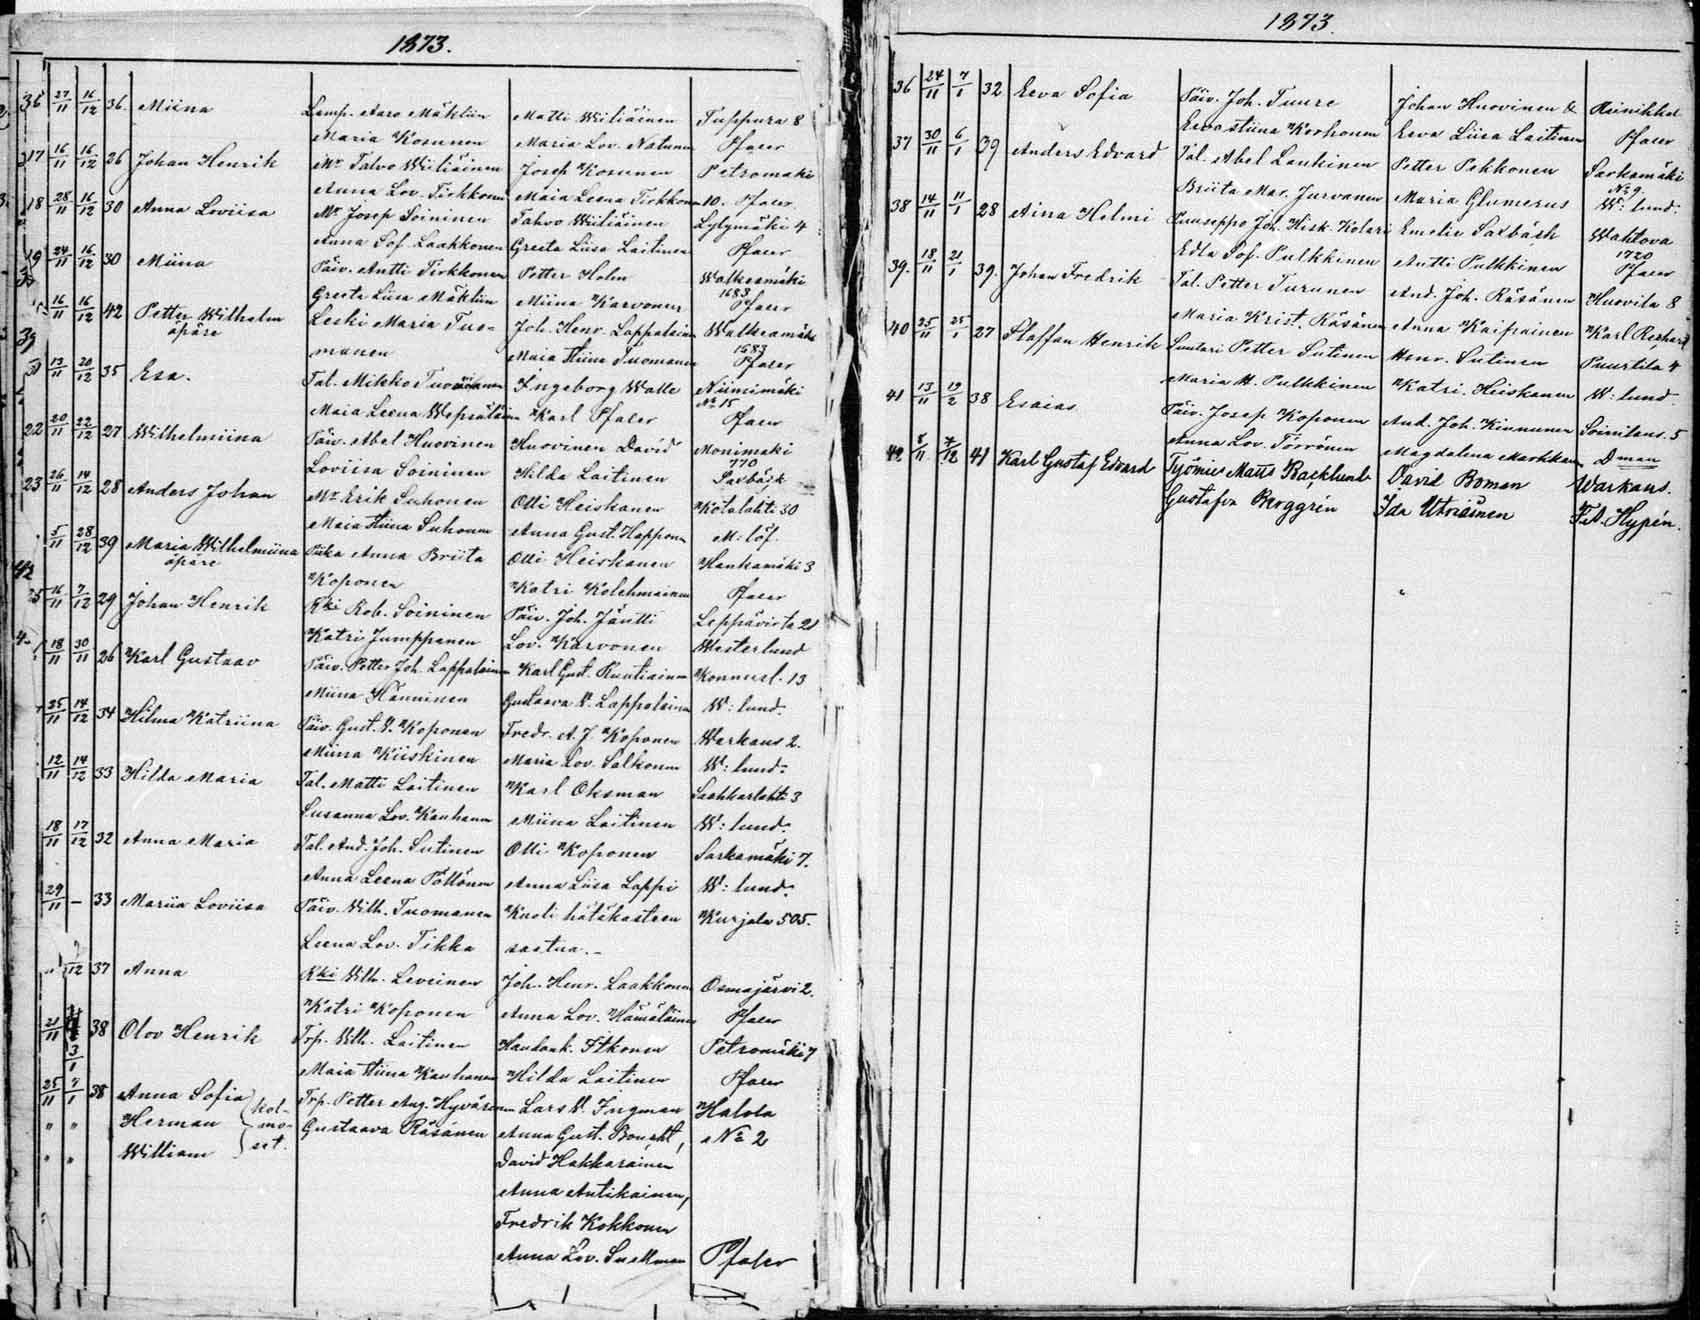 1873.
36 27/11 16/12 36 Miina Lamp. Aaro Mäkliin Matti Wiiliäinen Tuppura 8
Maria Kosunen Maria Lov. Natunen Pfaler
17 16/11 16/12 26 Johan Henrik Mr Talvo Wiiliäinen Josep Kosunen Petromäki
Anna Lov. Tirkkonen Maia Leena Tirkkonen 10. Pfaler
18 28/11 16/12 30 Anna Loviisa Mr Josep Soininen Tahvo Wiiliäinen Lylymäki 4
Anna Sof. Laakkonen Greeta Liisa Laitinen Pfaler
19 24/11 16/12 30 Miina Päiv. Antti Tirkkonen Petter Holm Walkeamäki
Greeta Liisa Mäkliin Miina Karvonen 1683 Pfaler
16/11 16/12 42 Petter Wilhelm Leski Maria Tuo- Joh. Henr. Lappalainen Walkeamäki
äpäre manen Maia Stiina Tuomanen 1683 Pfaler
13/11 20/12 35 Esa. Tal. Mikko Tuomanen Ingeborg Walle Niinimäki
Maia Leena Wepsäläinen Karl Pfaler No 15 Pfaler
22 20/11 22/12 27 Wilhelmiina Päiv. Abel Huovinen Huovinen David Monimäki
Loviisa Soininen Hilda Laitinen 770 Saxbäck
23 26/11 14/12 28 Anders Johan Mr Erik Suhonen Olli Heiskanen Kotalahti 30
Maia Stiina Suhonen Anna Gust. Happonen M: löf.
5/11 28/12 39 Maria Wilhelmiina Piika Anna Briita Olli Heiskanen Hankamäki 3
äpäre Koponen Katri Kolehmainen Pfaler
25 16/11 7/12 29 Johan Henrik Kki Rob. Soininen Päiv. Joh. Jäntti Leppävirta 21
Katri Jumppanen Lov. Karvonen Westerlund
18/11 30/11 26 Karl Gustaav Päiv. Petter Joh. Lappalainen Karl Gust. Ruutiainen Konnusl. 13
Miina Hänninen Gustaava W. Lappalainen W: lund.
25/11 14/12 34 Hilma Katriina Päiv. Gust. V. Koponen Fredr. A. J. Koponen Warkaus 2.
Miina Kiiskinen Maria Lov. Salkonen W: lund:
12/11 14/12 33 Hilda Maria Tal. Matti Laitinen Karl Oksman Saahkarlahti 3
Susanna Lov. Kauhanen Miina Laitinen W: lund:
18/11 17/12 32 Anna Maria Tal. And. Joh. Sutinen Olli Koponen Sarkamäki 7.
Anna Leena Pöllönen Anna Liisa Lappi W: lund:
29/11 – 33 Mariia Loviisa Päiv. Wilh. Tuomanen Kuoli hätäkasteen Kurjala 505.
Leena Lov. Tikka saatua.
/12 37 Anna Kki Wilh. Leveinen Joh. Henr. Laakkonen Osmajärvi 2.
Katri Koponen Anna Lov. Hämäläinen Pfaler
21/11 3/1 38 Olov Henrik Trp. Wilh. Laitinen Itkonen Petromäki 7
Maia Stiina Kauhanen Hilda Laitinen Pfaler
25/11 7/1 38 Anna Sofia kol- Trp. Petter Aug. Hyvärinen Lars W. Ingman Halola
" " Herman mo- Gustaava Räsänen Anna Gust. No 2
" " William set. David Hakkarainen
Anna Antikainen,
Fredrik Kokkonen
Anna Lov. Pfaler
1873.
36 24/11 7/1 32 Eeva Sofia Päiv. Joh. Tuure Johan Huovinen &
Eeva Stiina Korhonen Eeva Liisa Laitinen Pfaler
37 30/11 6/1 39 Anders Edvard Tal. Abel Laukinen Petter Pekkonen Sarkamäki
Briita Mar. Jurvanen Maria Glumerus No 9. W: lund.
38 14/11 11/1 28 Aina Helmi Puuseppo Joh. Hisk. Kolari Emelie Saxbäck Wahtova
Edla Sof. Pulkkinen Antti Pulkkinen 1720 Pfaler
39. 18/11 21/1 39. Johan Fredrik Tal. Petter Turunen And. Joh. Räsänen Huovila 8
Maria Krist. Räsänen Anna Kaipainen Karl Rechard
40 25/11 25/1 27 Staffan Henrik Suutari Petter Sutinen Henr. Sutinen Puurtila 4
Maria H. Pulkkinen Katri. Heiskanen W: lund
41 13/11 19/2 38 Esaias Päiv. Josep Koponen And. Joh. Kinnunen Soinilans. 5
Anna Lov. Törrönen Magdalena Markkanen D man
42 8/11 7/12 41 Karl Gustaf Edvard Työmies Matts Backlund David Boman Warkaus.
Gustafva Berggrén Ida Utriainen F. A. Hypén.